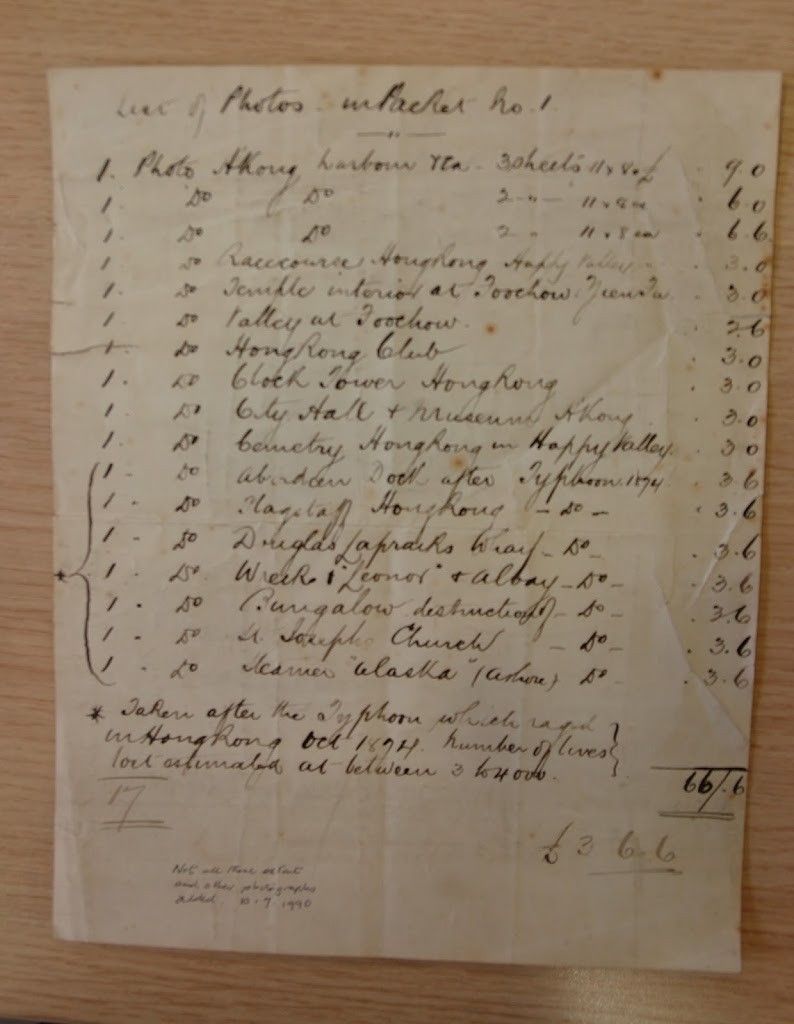 List of Photos in Packet No. 1.
1. Photo H'Kong harbour 3 sheets 11 x 8 £ 9.0
1. Do Do 2 " 11 x 8 6.0
1. Do Do 2 " 11 x 8 6.6
1. Do Racecourse HongKong Happy Valley 3.0
1. Do Temple interior at Foochow 3.0
1. Do Valley at Foochow. 2.6
1. Do HongKong Club 3.0
1. Do Clock Tower HongKong 3.0
1. Do City Hall & Museum H'Kong 3.0
1. Do Cemetry HongKong in Happy Valley. 3.0
1 - Do Aberdeen Dock after Typhoon. 1874. 3.6
1 - Do Flagstaff HongKong - Do - 3.6
1 - Do Douglas Lapraiks Wharf - Do - 3.6
* 1 - Do. Wreck "Leonor" & Albay - Do - 3.6
1 - Do Bungalow destruction of - Do - 3.6
1 - Do St Josephs Church - Do - 3.6
1 - Do Steamer "Alaska" (Ashore) Do - 3.6
* Taken after the Typhoon which raged
in HongKong Oct 1874. Number of lives
lost estimated at between 3 to 4000.
66/.6
17
£3 6.6
Not all these extant
and other photographs
added. 10.7.1990